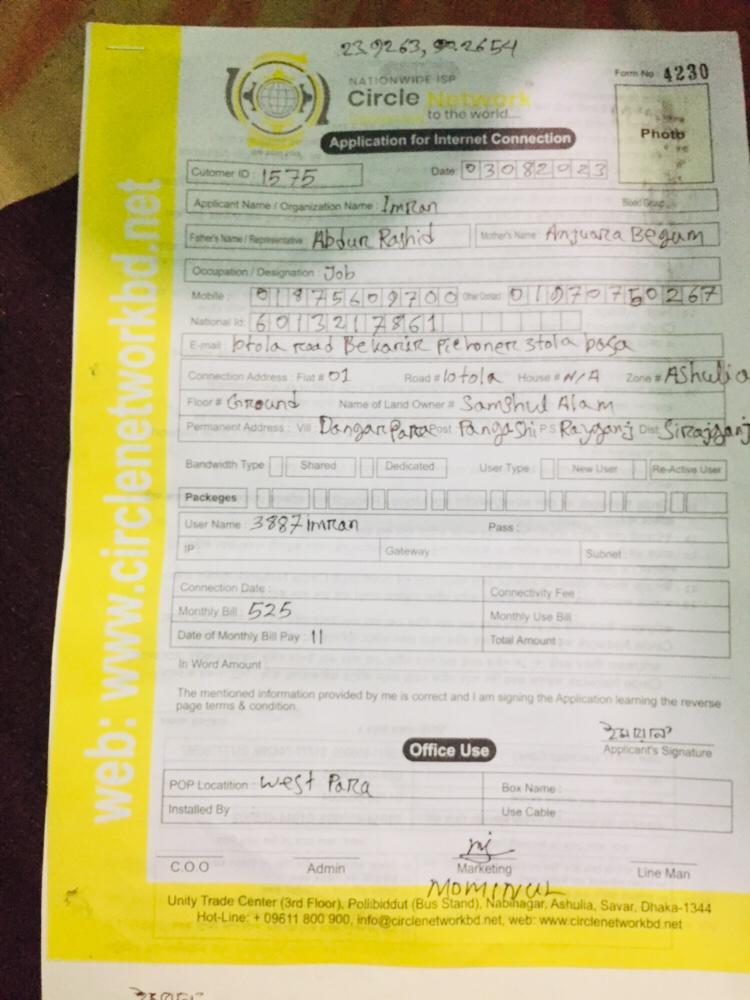 23.9263, 90.2654
NATIONWIDE ISP
Form No : 4230
Circle Network
to the world....
Photo
Application for Internet Connection
Cutomer ID : 1575
Date: 03082023
Applicant Name / Organization Name : Imran
Blood Group :
Father's Name / Representative : Abdur Rashid
Mother's Name : Anjuara Begum
Occupation / Designation : Job
Mobile : 01875609700
Other Contact : 01970750267
National Id: 6013217861
E-mail : btola road Bekarir pichoner 3tola basa
Connection Address : Flat # 01 Road # 10tola House # N/A Zone # Ashulia
Floor # Ground Name of Land Owner # Samshul Alam
Permanent Address : Vill Dangarpara Post Pangashi P.S Rayganj Dist Sirajganj
Bandwidth Type Shared Dedicated User Type : New User Re-Active User
Packeges
User Name : 3887imran Pass :
IP : Gateway : Subnet :
Connection Date : Connectivity Fee :
Monthly Bill : 525 Monthly Use Bill :
Date of Monthly Bill Pay : 11 Total Amount :
In Word Amount
The mentioned information provided by me is correct and I am signing the Application learning the reverse
page terms & condition.
ইমরান
Applicant's Signature
Office Use
POP Locatition : West Para Box Name :
Installed By Use Cable :
C.O.O Admin Marketing Line Man
MOMINUL
Unity Trade Center (3rd Floor), Pollibiddut (Bus Stand), Nabinagar, Ashulia, Savar, Dhaka-1344
Hot-Line: + 09611 800 900, info@circlenetworkbd.net, web: www.circlenetworkbd.net
web: www.circlenetworkbd.net